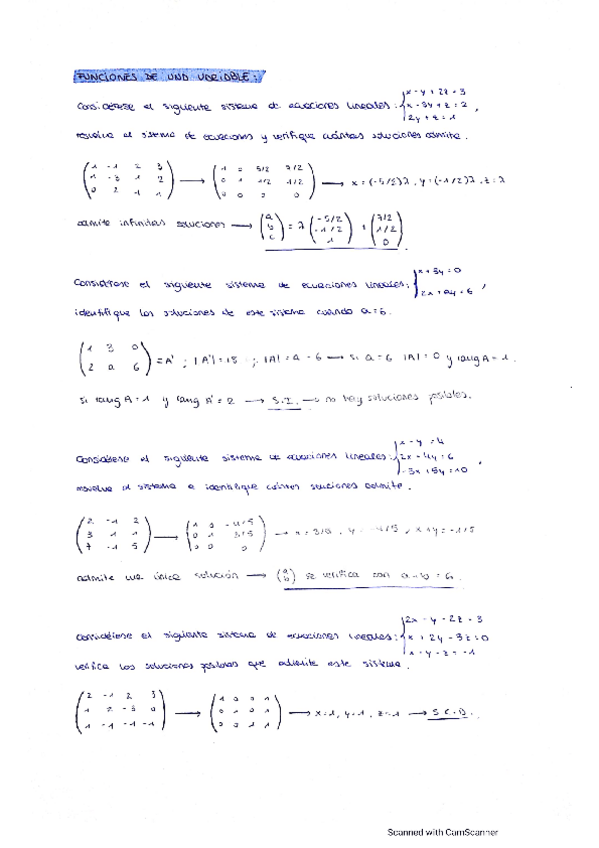 FUNCIONES DE UNA VARIABLE:
Considérese el siguiente sistema de ecuaciones lineales: { x - y + 2z = 3
x - 3y + z = 2 ,
2y + z = 1
resuelva el sistema de ecuaciones y verifique cuántas soluciones admite.
( 1 -1 2 3 → ( 1 0 5/2 7/2
1 -3 1 2 0 1 1/2 1/2 → x = (-5/2)λ, y = (-1/2)λ, z = λ
0 2 1 1 ) 0 0 0 0 )
admite infinitas soluciones → (a b c) = λ (-5/2 -1/2 1) + (7/2 1/2 0).
Considérese el siguiente sistema de ecuaciones lineales: { x + 3y = 0
2x + ay = 6 ,
identifique las soluciones de este sistema cuando a = 6.
( 1 3 0
2 a 6 ) = A' ; |A'| = 15 ; |A| = a - 6 → si a = 6 |A| = 0 y rang A = 1.
si rang A = 1 y rang A' = 2 → S.I. → no hay soluciones posibles.
Considérese el siguiente sistema de ecuaciones lineales: { x - y = 4
2x - 4y = 6
-3x + 5y = 10 ,
resuelva el sistema e identifique cuántas soluciones admite.
( 2 -1 2 → ( 1 0 -4/5
3 1 1 0 1 3/5
7 -1 5 ) 0 0 0 )
admite una única solución → (a b) se verifica con a - b = 6.
Considérese el siguiente sistema de ecuaciones lineales: { 2x - y - 2z = 3
x + 2y - 3z = 0
x - y - z = -1
verifica las soluciones posibles que admite este sistema.
( 2 -1 2 3 → ( 1 0 0 1
1 2 -3 0 0 1 0 1 → x = 1, y = 1, z = 1 → S.C.D.
1 -1 -1 -1 ) 0 0 1 1 )
Scanned with CamScanner